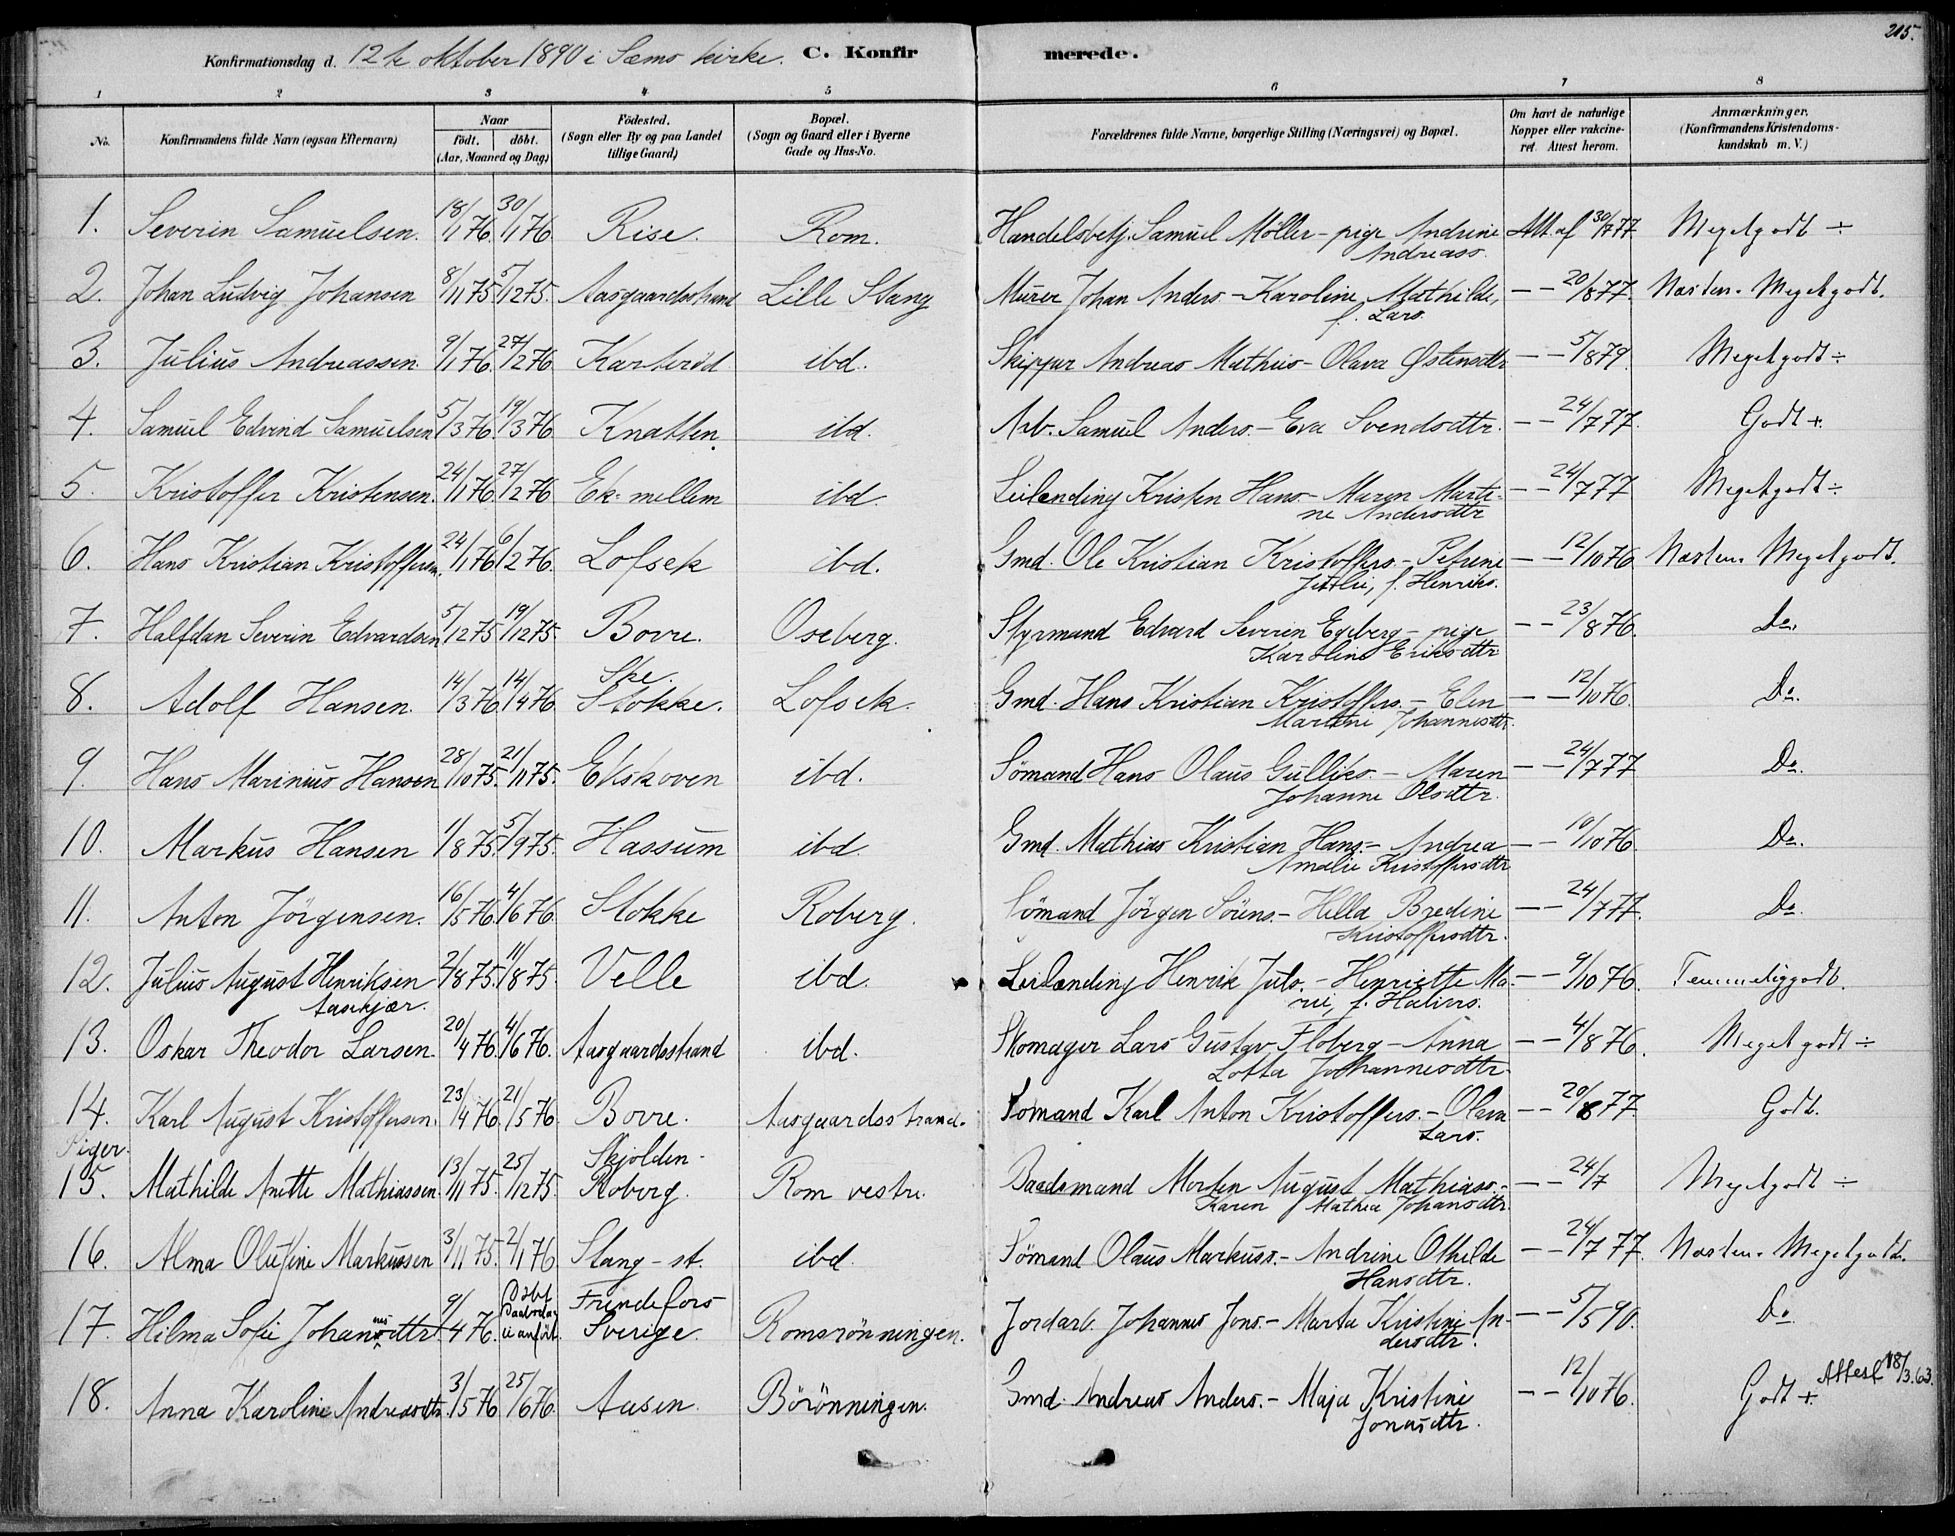 215.
Konfirmationsdag d. 12te oktober 1890 i Sæms kirke. C. Konfirmerede.
1 2 3 4 5 6 7 8
No. Konfirmandens fulde Navn (ogsaa Efternavn) Naar födt. döbt. (Aar, Maaned og Dag) Födested. (Sogn eller By og paa Landet tillige Gaard) Bopæl. (Sogn og Gaard eller i Byerne Gade og Hus-No. Forældrenes fulde Navne, borgerlige Stilling (Næringsvei) og Bopæl. Om havt de naturlige Kopper eller vakcineret. Attest herom. Anmærkninger. (Konfirmandens Kristendomskundskab m. V.)
1. Severin Samuelsen. 18/1 76. 30/1 76. Rise. Rom. Handelsbetj. Samuel Möller - pige Andrine Andreass. Att. af 30/7 77 Megetgodt ÷
2. Johan Ludvig Johansen 8/11 75. 5/12 75. Aasgaardsstrand Lille Stang Murer Johan Anders. - Karoline Mathilde, f. Lars. — — 20/8 77. Næsten Megetgodt.
3. Julius Andreassen. 9/1 76. 27/2 76. Karterød ibd. Skipper Andreas Mathias - Olava Østensdtr — — 5/8 79. Megetgodt ÷
4. Samuel Edvind Samuelsen 5/3 76. 19/3 76. Knatten ibd. Arb. Samuel Anders. - Eva Svendsdtr. — — 24/7 77. Godt +.
5. Kristoffer Kristensen. 24/1 76. 27/2 76 Ek: mellem ibd. Leilænding Kristen Hans. - Maren Martine Andersdtr — — 24/7 77 Megetgodt ÷
6. Hans Kristian Kristoffersen. 24/1 76. 6/2 76. Lofsek ibd. Gmd. Ole Kristian Kristoffers. - Petrine Juttlie, f. Henriks. — — 12/10 76 Næsten Megetgodt.
7. Halfdan Severin Edvardsen 5/12 75 19/12 75. Borre. Oseberg. Styrmand Edvard Severin Egeberg - pige Karoline Eriksdtr — — 23/8 76. Do.
8. Adolf Hansen. 14/3 76. 14/4 76 Ske. Stokke. Lofsek. Gmd. Hans Kristian Kristoffers. - Elen Martine Johannesdtr. — — 12/10 76. Do.
9. Hans Marinius Hansen 28/10 75. 21/11 75. Ekskoven ibd. Sömand Hans Olaus Gulliks. - Maren Johanne Olsdtr. — — 24/7 77 Do.
10. Markus Hansen 1/8 75. 5/9 75. Hassum ibd. Gmd. Mathias Kristian Hans. - Andrea Amalie Kristoffersdtr — — 19/10 76. Do.
11. Anton Jörgensen. 16/5 76. 4/6 76. Stokke Roberg. Sömand Jörgen Sörens. - Hella Bredine Kristoffersdtr. — — 24/7 77. Do.
12. Julius August Henriksen Aaskjær. 2/8 75. 11/8 75. Velle ibd. Leilænding Henrik Juls. - Henriette Marie, f. Halvors. — — 9/10 76. Temmeliggodt.
13. Oskar Theodor Larsen. 20/4 76. 4/6 76. Aasgaardsstrand ibd. Skomager Lars Gustav Floberg - Anna Lotta Johannesdtr. — — 4/8 76. Megetgodt ÷
14. Karl August Kristoffersen. 23/4 76. 21/5 76. Borre. Aasgaardsstrand. Sömand Karl Anton Kristoffers. - Olava Lars. — — 20/8 77 Godt.
Piger.
15. Mathilde Anette Mathiassen. 13/11 75. 25/12 75. Skjolden - Roberg. Rom vestre. Baadsmand Morten August Mathiass. - Karen Mathea Johansdtr. — — 24/7 Megetgodt ÷
16. Alma Olufine Markussen 3/11 75. 2/1 76. Stang - st. ibd. Sömand Olaus Markuss. - Andrine Othilde Hansdtr. — — 24/7 77. Næsten Megetgodt.
17. Hilma Sofie Johannesdtr. 9/4 76. Döbt Daabsdag ei anfört. Fründefors Sverige. Romsrönningen. Jordarb. Johannes Jons. - Marta Kristine Andersdtr. — — 5/5 90. Do
18. Anna Karoline Andreasdtr. 3/5 76 25/6 76. Aasen. Börönningen. Gmd. Andreas Anders. - Maja Kristine Jonasdtr. — — 12/10 76. Godt +. Attest 18/3.63.